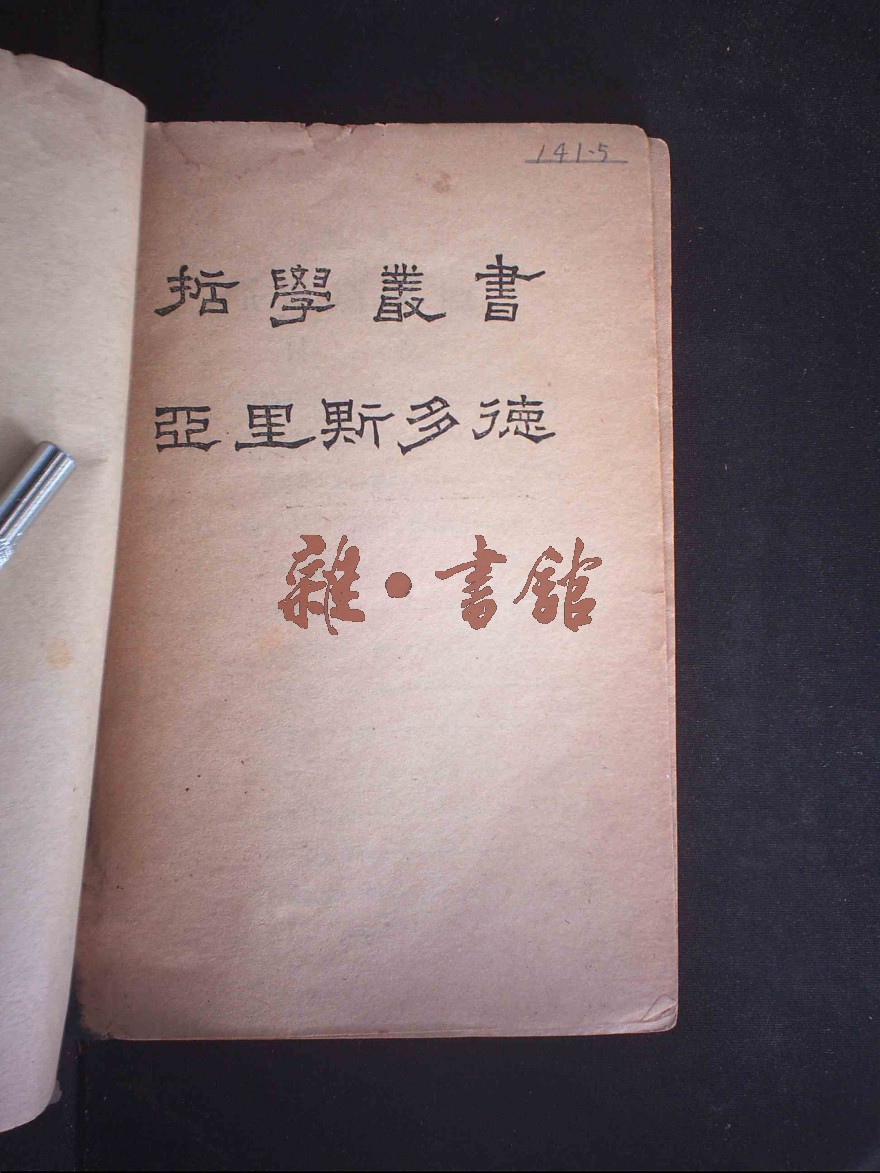 141.5
哲學叢書
亞里斯多德
雜·書館